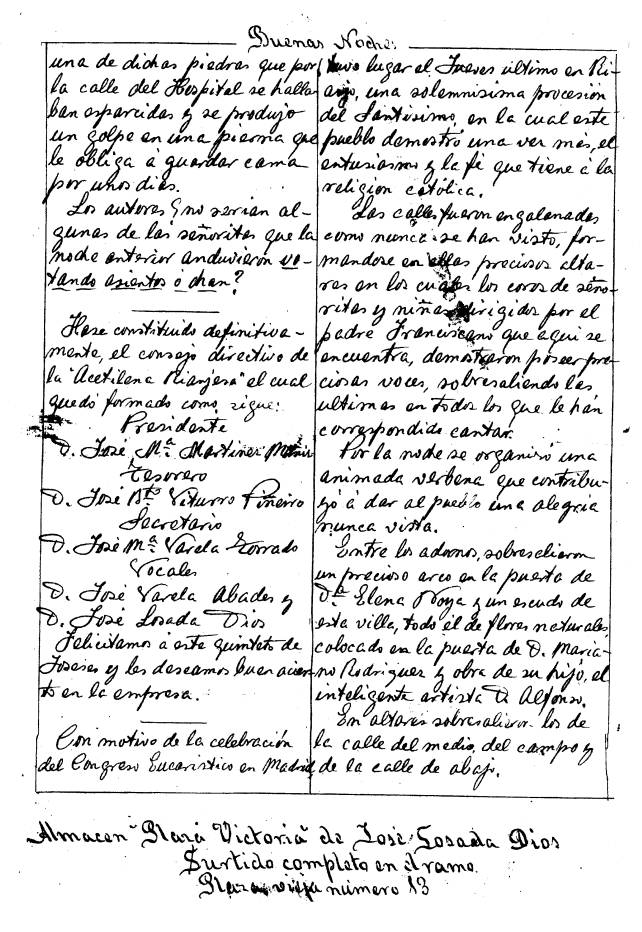 Buenas Noches
una de dichas piedras que por
la calle del Hospital se halla-
ban esparcidas y se produjo
un golpe en una pierna que
le obliga á guardar cama
por unos dias.
Los autores ¿no serian al-
gunas de las señoritas que la
noche anterior anduvieron vo-
tando asientos ó chan?
Hase constituido definitiva-
mente, el consejo directivo de
la "Acetilena Rianjera" el cual
quedó formado como sigue:
Presidente
D. José Mª Martinez
Tesorero
D. José Bto Viturro Piñeiro
Secretario
D. José Mª Varela Torrado
Vocales
D. José Varela Abades y
D. José Losada Dios
Felicitamos á este quinteto de
Joseses y les deseamos buen acier-
to en la empresa.
Con motivo de la celebración
del Congreso Eucaristico en Madrid,
tuvo lugar el Jueves último en Ri-
anjo, una solemnisima procesión
del Santisimo, en la cual este
pueblo demostró una vez más, el
entusiasmo y la fé que tiene á la
religion católica.
Las calles fueron engalanadas
como nunca se han visto, for-
mandose en ellas preciosos alta-
res en los cuales los coros de seño-
ritas y niñas dirigidos por el
padre Franciscano que aqui se
encuentra, demostraron poseer pre-
ciosas voces, sobresaliendo las
ultimas en todos los que le han
correspondido cantar.
Por la noche se organizó una
animada verbena que contribu-
yó á dar al pueblo una alegria
nunca vista.
Entre los adornos, sobresalieron
un precioso arco en la puerta de
Dª Elena Noya y un escudo de
esta villa, todo él de flores naturales,
colocado en la puerta de D. Maria-
no Rodriguez y obra de su hijo, el
inteligente artista D Alfonso.
En altares sobresalieron los de
la calle del medio, del campo y
de la calle de abajo.
Almacen "Plaza Victoria" de José Losada Dios
Surtido completo en el ramo
Plaza vieja número 13